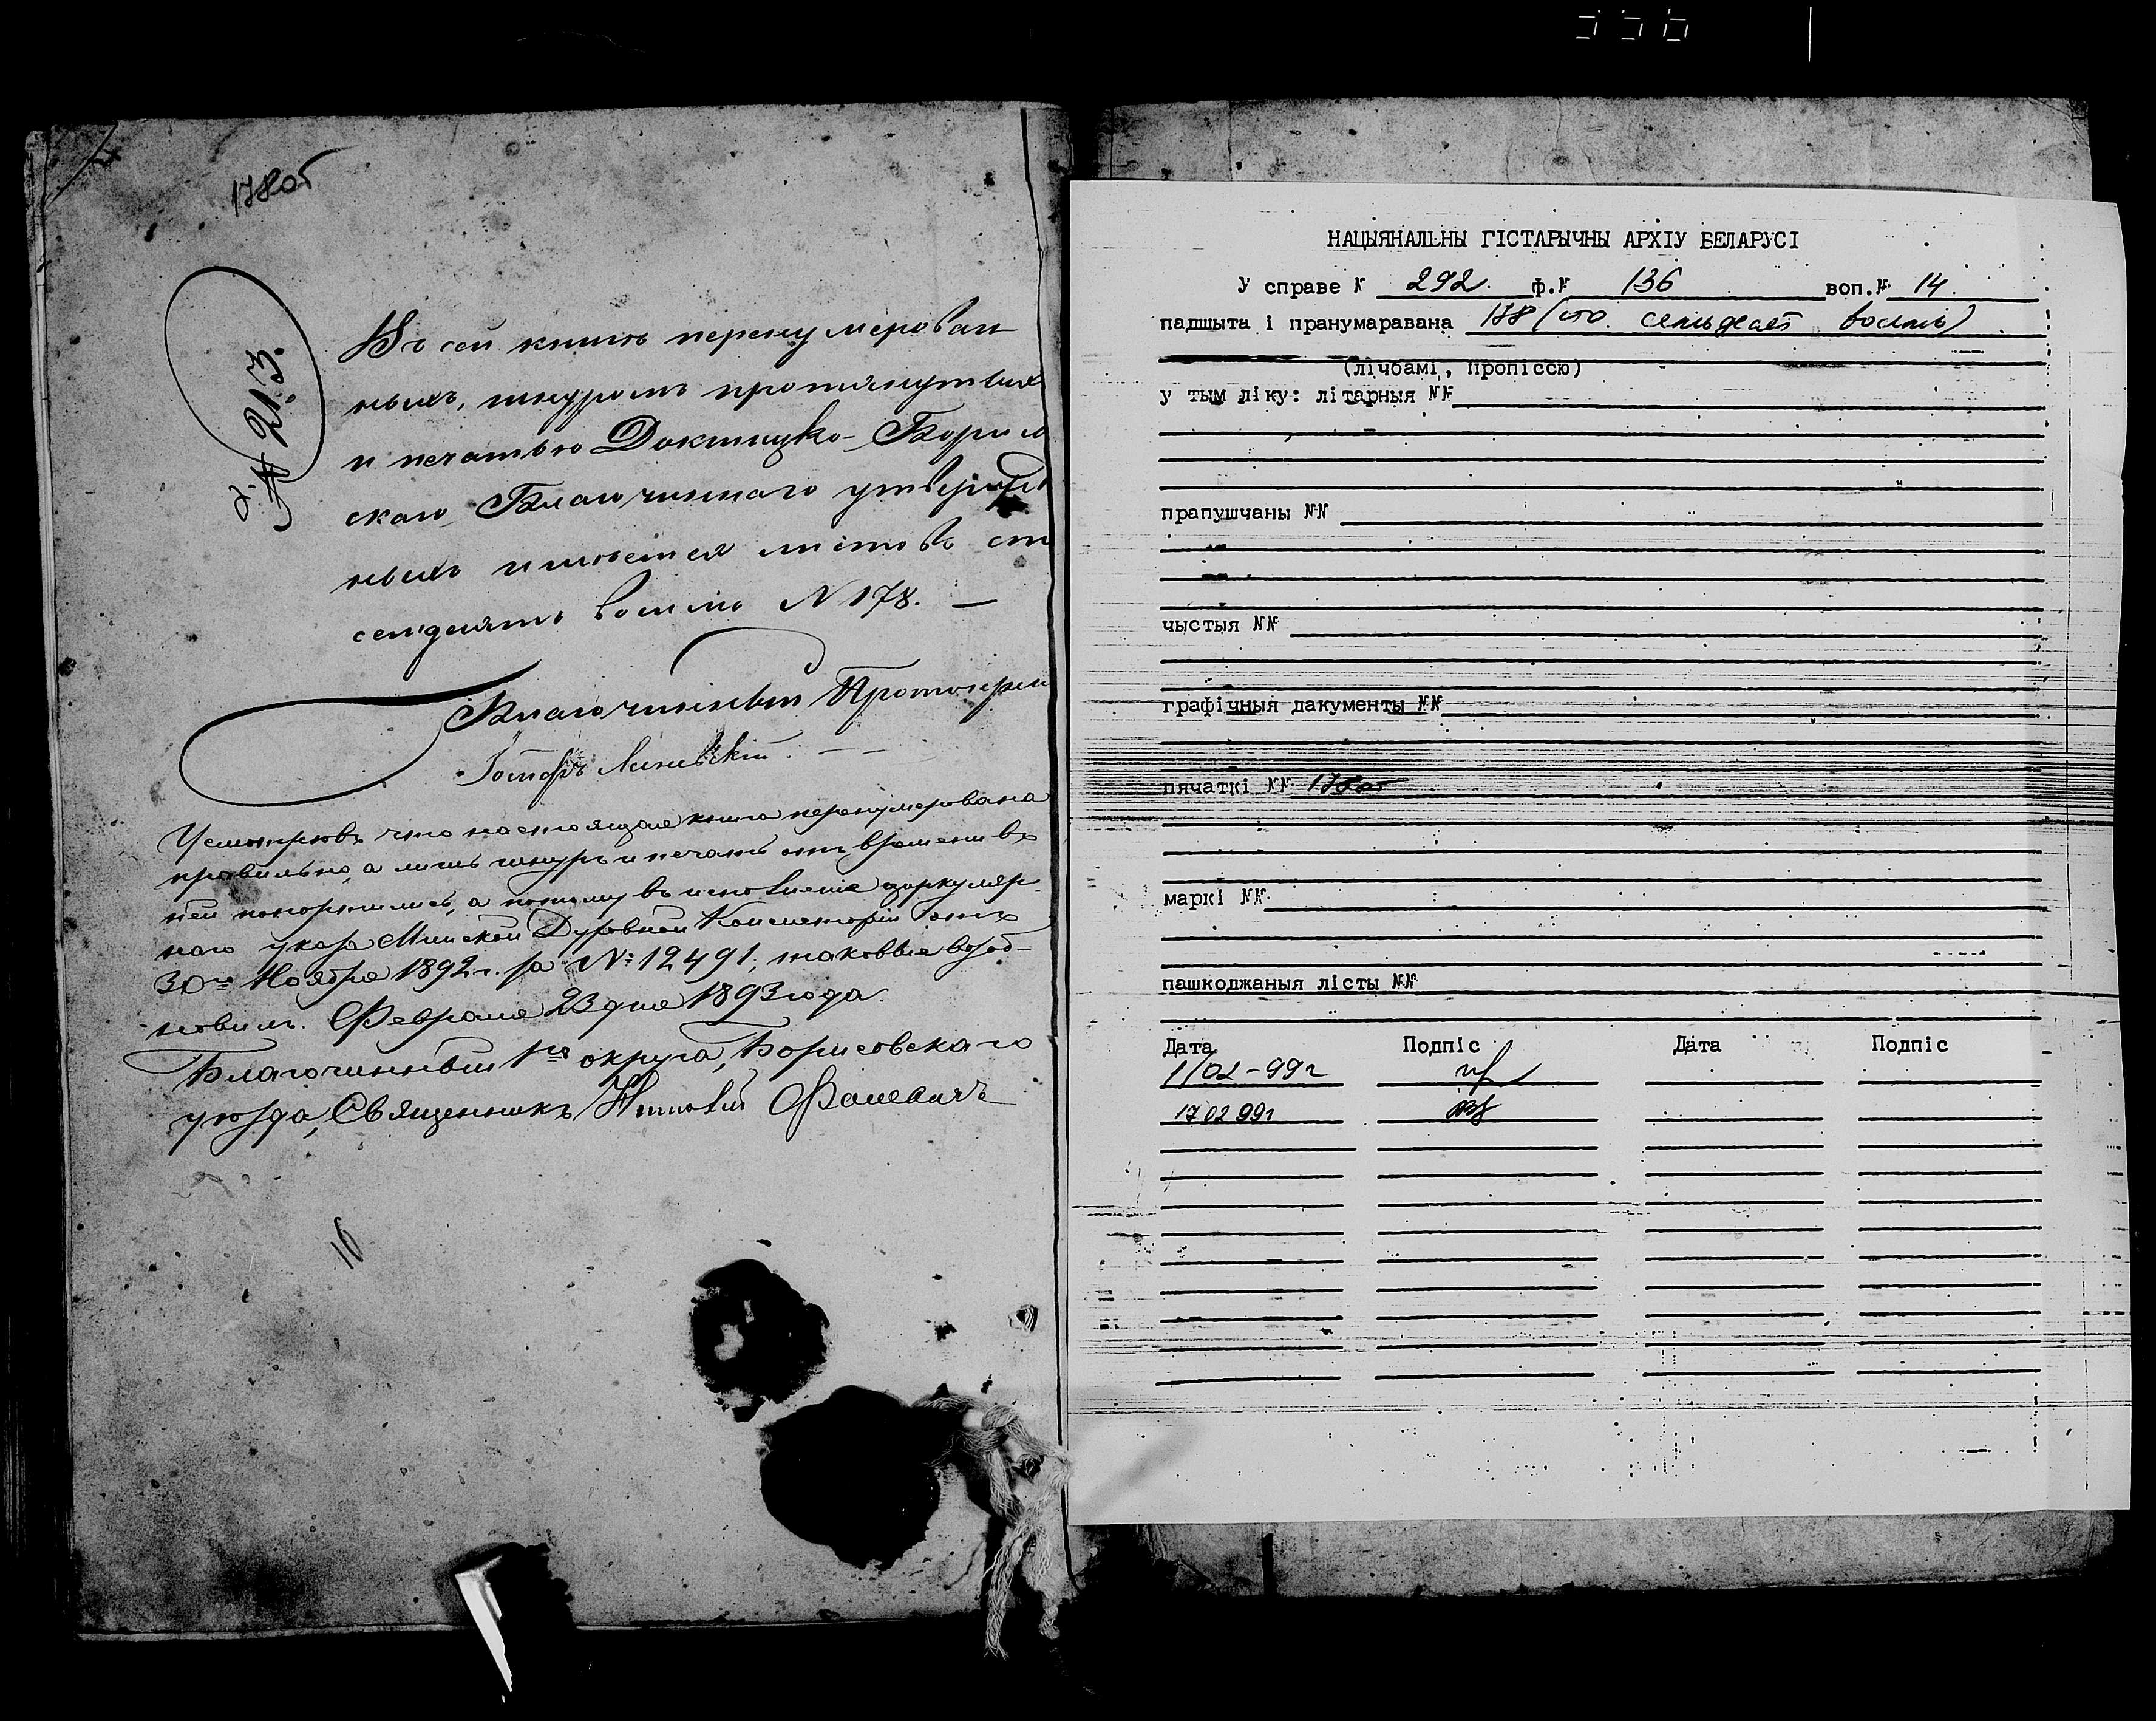 178об
№ 213.
Въ сей книгѣ перенумерован
ныхъ, шнуромъ протянутыхъ
и печатью Докшицко-Борисо
скаго Благочиннаго утвержден
ныхъ имѣется листовъ сто
семдесятъ восемь N 178. —
Благочинный Протоіерей
Іосифъ
Усмотрѣвъ что настоящая книга перенумерована
правильно, а лишь шнуръ и печать отъ времени въ
ней попортились, а потому въ исполненіе циркуляр-
наго указа Минской Духовной Консисторіи отъ
30го Ноября 1892 г. за № 12491, таковые возоб-
новилъ. Февраля 23 дня 1893 года.
Благочинный 1го округа, Борисовскаго
уѣзда, Священникъ
16
НАЦЫЯНАЛЬНЫ ГІСТАРЫЧНЫ АРХІУ БЕЛАРУСІ
У справе N 292. ф.N 136 воп.N 14.
падшыта і пранумаравана 178 (сто семьдесят восемь)
(лічбамі, пропіссю)
у тым ліку: літарныя NN
прапушчаны NN
чыстыя NN
графічныя дакументы NN
пячаткі NN 178об
маркі NN
пашкоджаныя лісты NN
Дата Подпіс Дата Подпіс
1/02-99г
17 02 99г